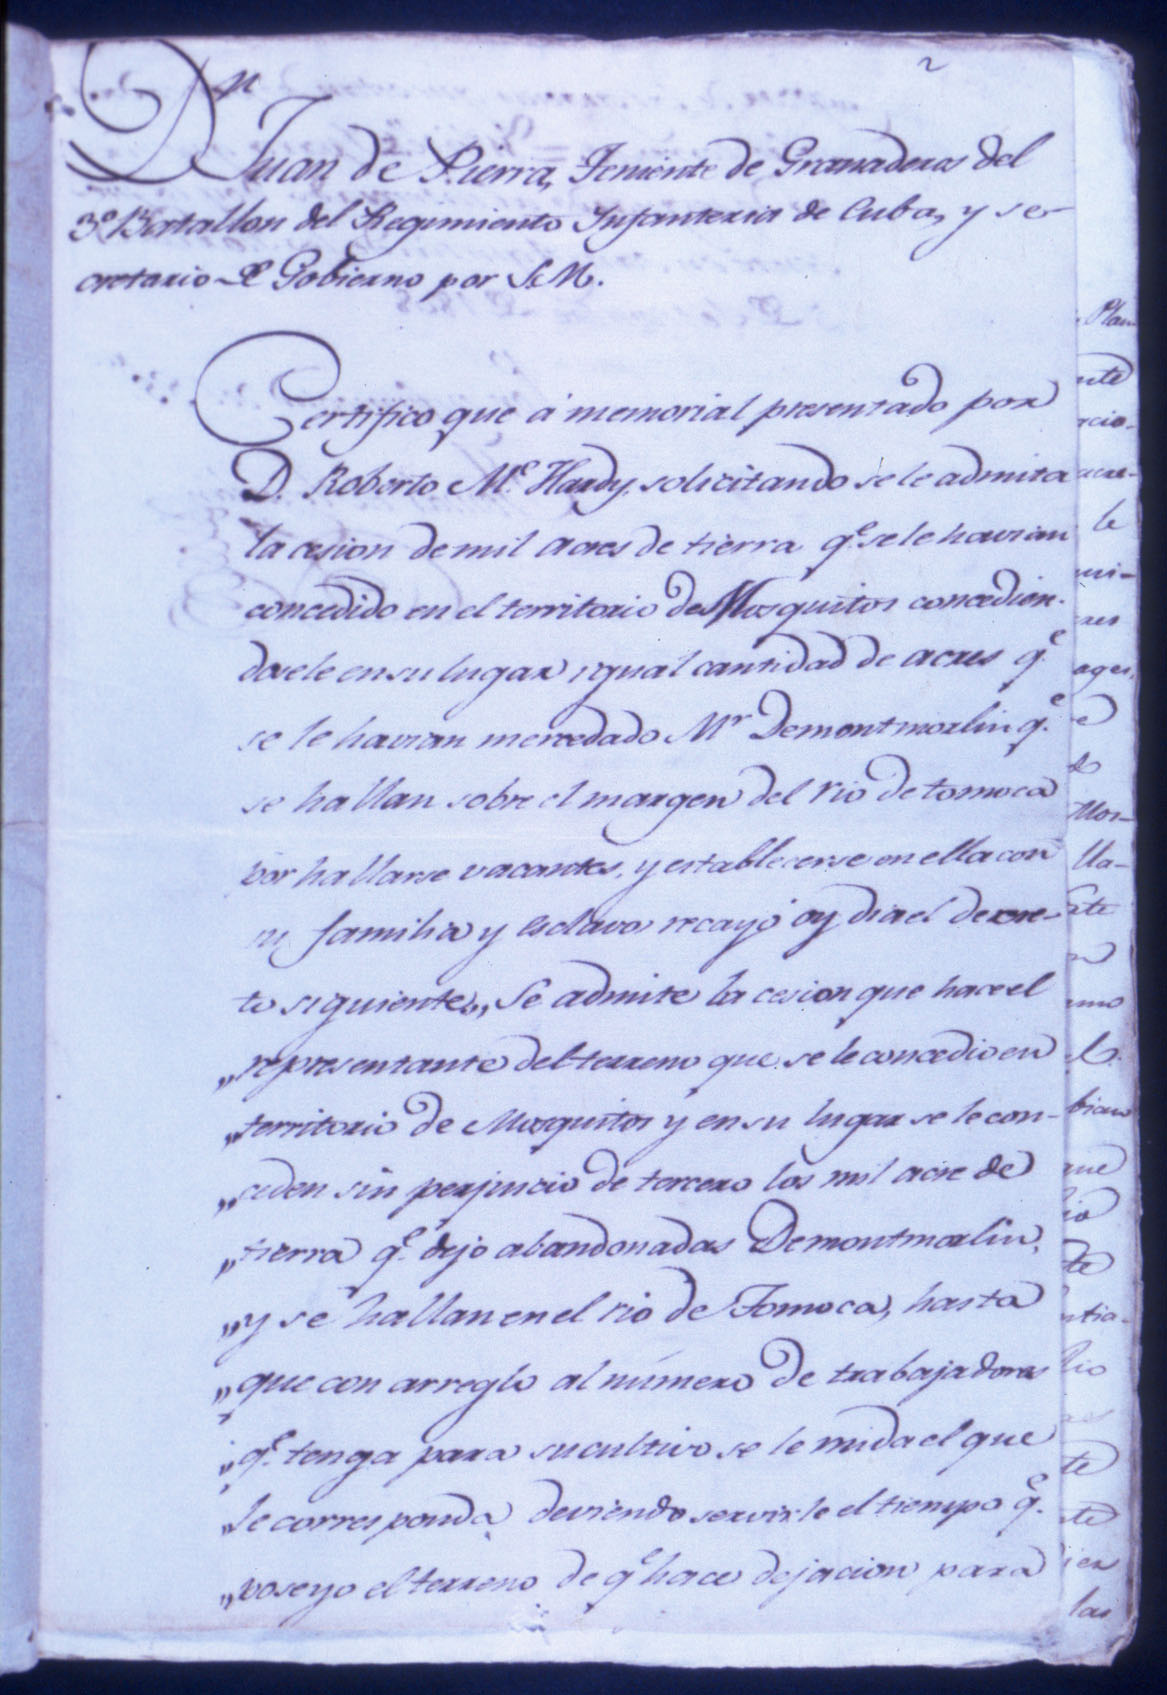 2
Dn Juan de Pierra, Teniente de Granaderos del
3º Batallon del Regimiento Infanteria de Cuba, y se-
cretario de Gobierno por S.M.
Certifico que á memorial presentado por
D. Roberto Mc. Hardy, solicitando se le admita
la cesion de mil acres de tierra qe. se le havian
concedido en el territorio de Mosquitos concedien-
dosele en su lugar igual cantidad de acres qe.
se le havian mercedado Mr Demontmorlin qe.
se hallan sobre el margen del rio de tomoca
por hallarse vacantes, y establecerse en ella con
su familia y esclavos recayó oy dia el decre-
to siguiente,, Se admite la cesion que hace el
,,representante del terreno que se le concedio en
,,territorio de Mosquitos y en su lugar se le con-
,,ceden sin perjuicio de tercero los mil acre de
,,tierra qe. dejo abandonadas Demontmorlin,
,,y se hallan en el rio de Tomoca, hasta
,,que con arreglo al número de trabajadores
,,qe. tenga para su cultivo se le mida el que
,,le corresponda deviendo servirle el tiempo qe.
,,poseyo el terreno de qe hace dejacion para